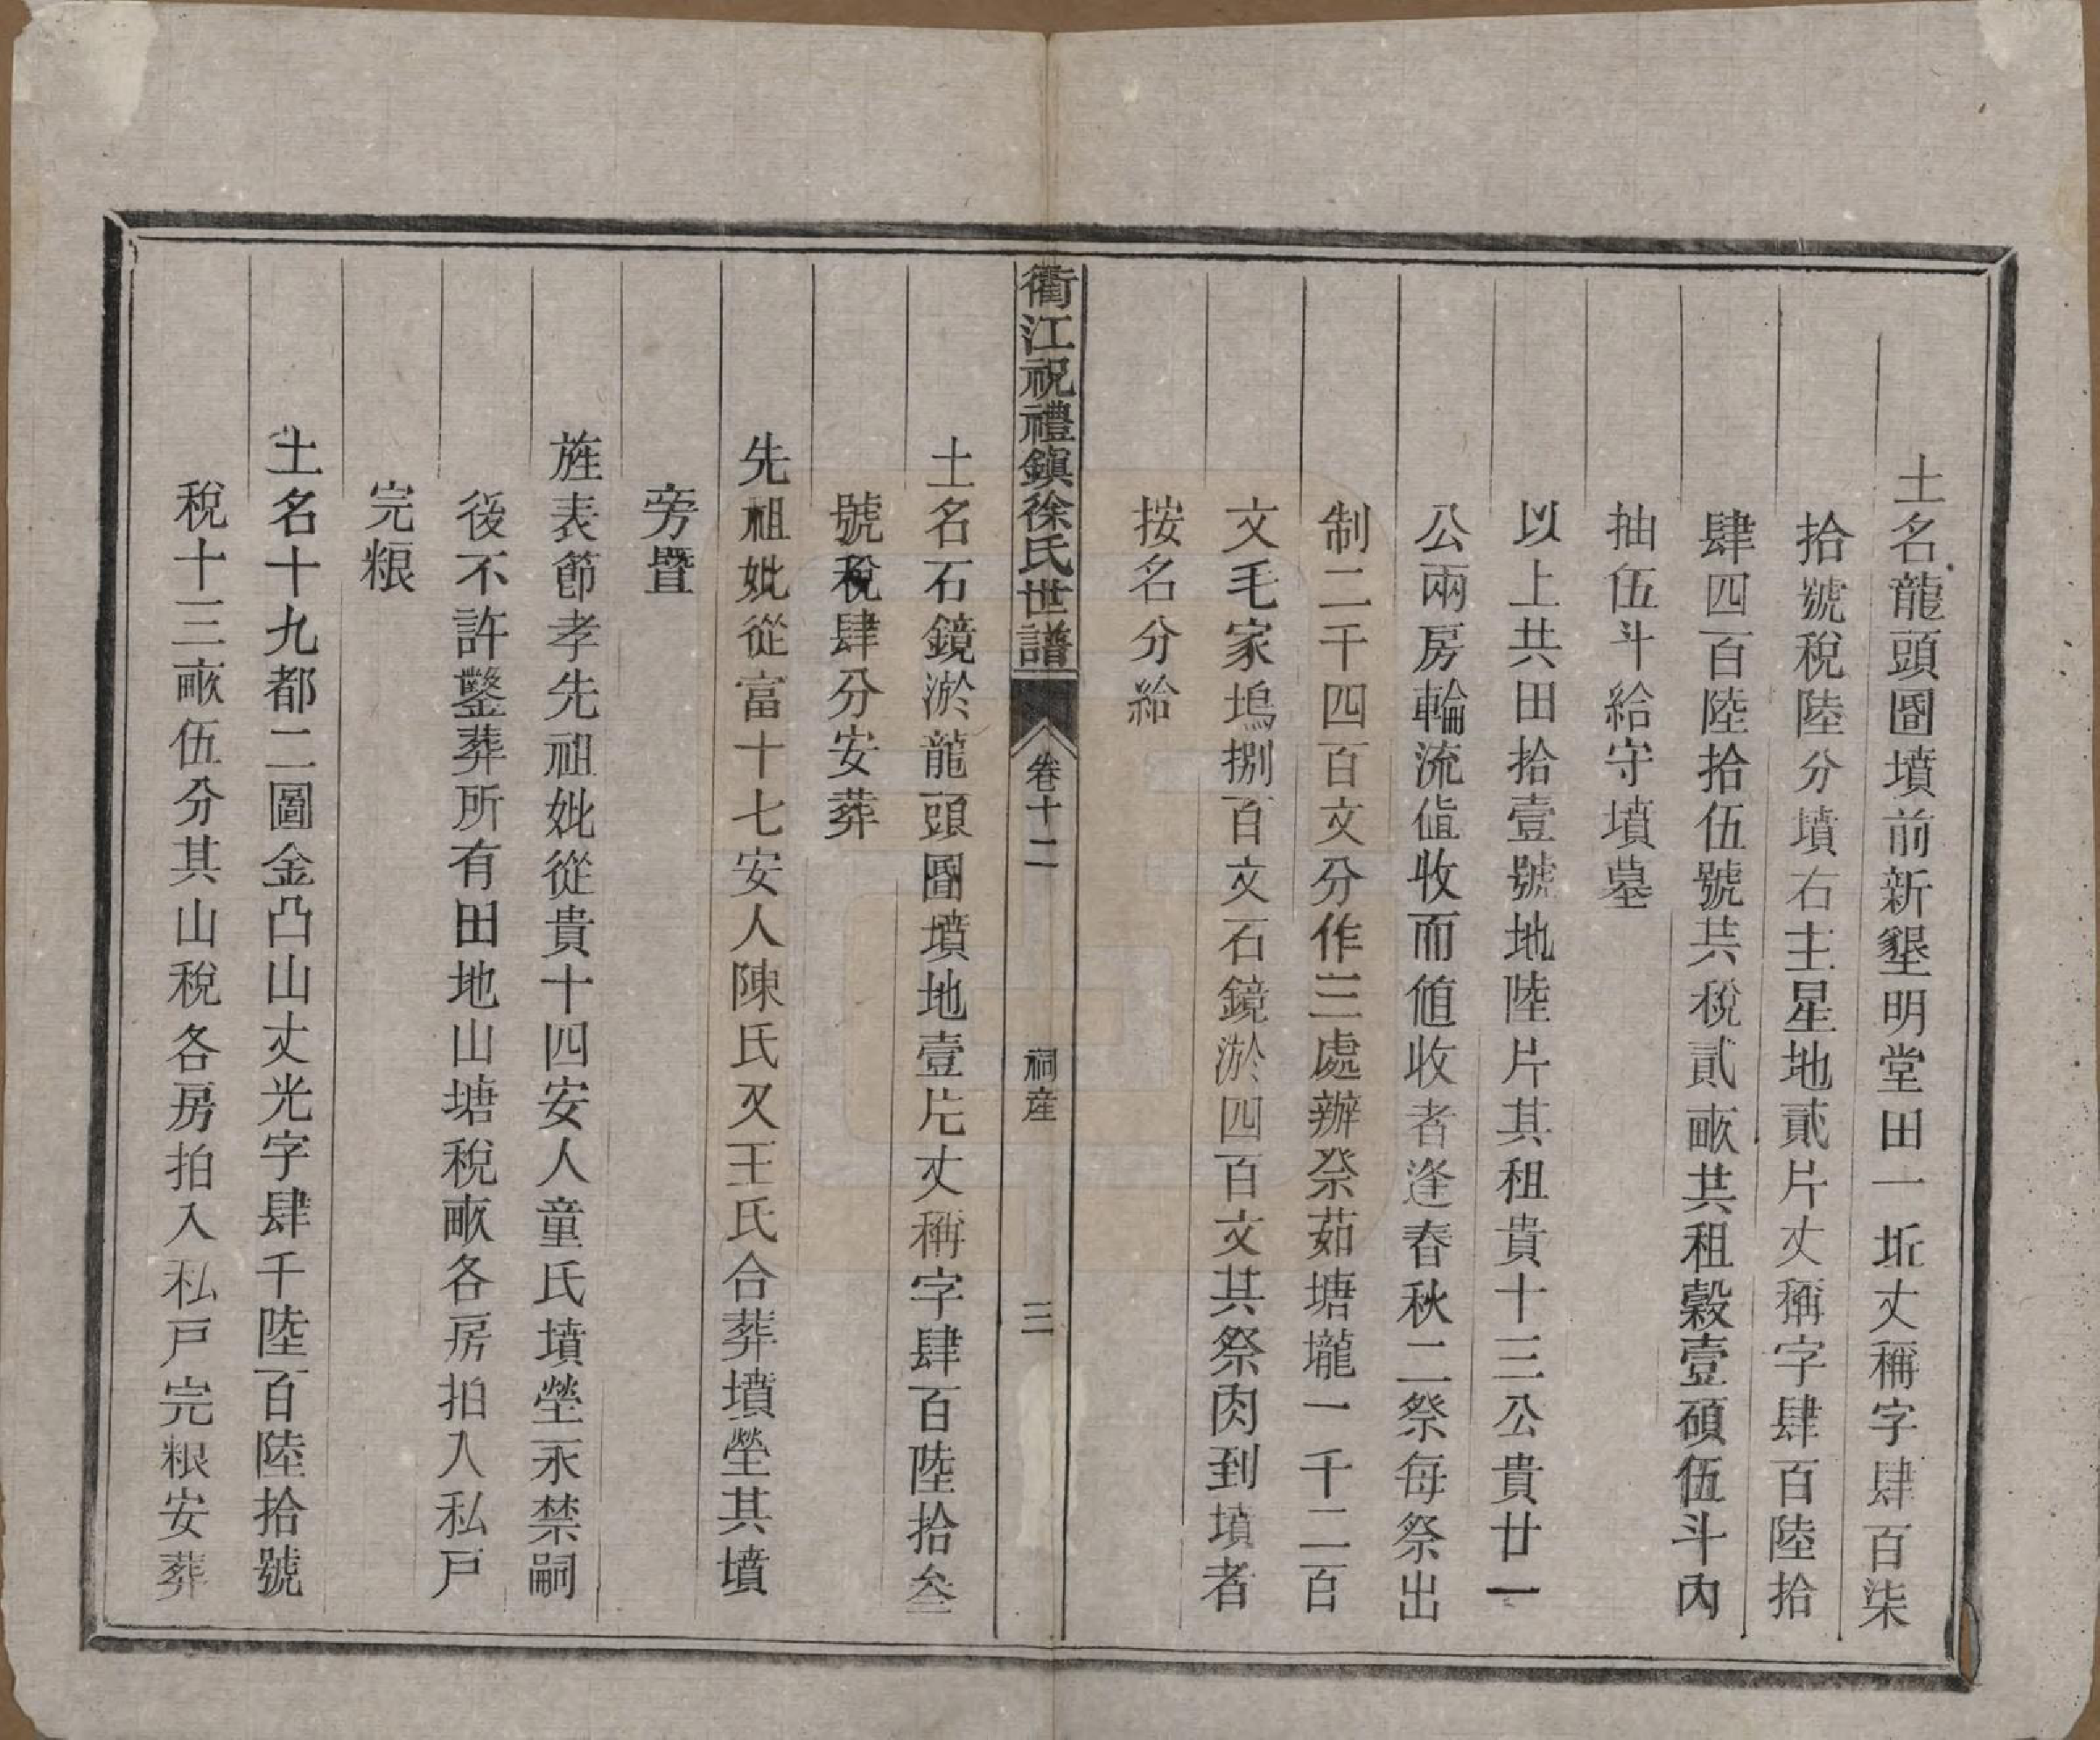 土名龍頭圖墳前新墾明堂田一坵丈稱字肆百柒
拾號稅陸分墳右主星地貳片丈稱字肆百陸拾
肆四百陸拾伍號共稅貳畝共租穀壹碩伍斗內
抽伍斗給守墳墓
以上共田拾壹號地陸片其租貴十三公貴廿一
公兩房輪流值收而值收者逢春秋二祭每祭出
制二千四百文分作三處辦祭茹塘壠一千二百
文毛家塢捌百文石鏡淤四百文其祭肉到墳者
按名分給
衢江祝禮鎮徐氏世譜 卷十二 祠産 三
土名石鏡淤龍頭圖墳地壹片丈稱字肆百陸拾叁
號稅肆分安葬
先祖妣從富十七安人陳氏又王氏合葬墳塋其墳
旁暨
旌表節孝先祖妣從貴十四安人童氏墳塋永禁嗣
後不許鑿葬所有田地山塘稅畝各房拍入私戶
完粮
土名十九都二圖金凸山丈光字肆千陸百陸拾號
稅十三畝伍分其山稅各房拍入私戶完粮安葬